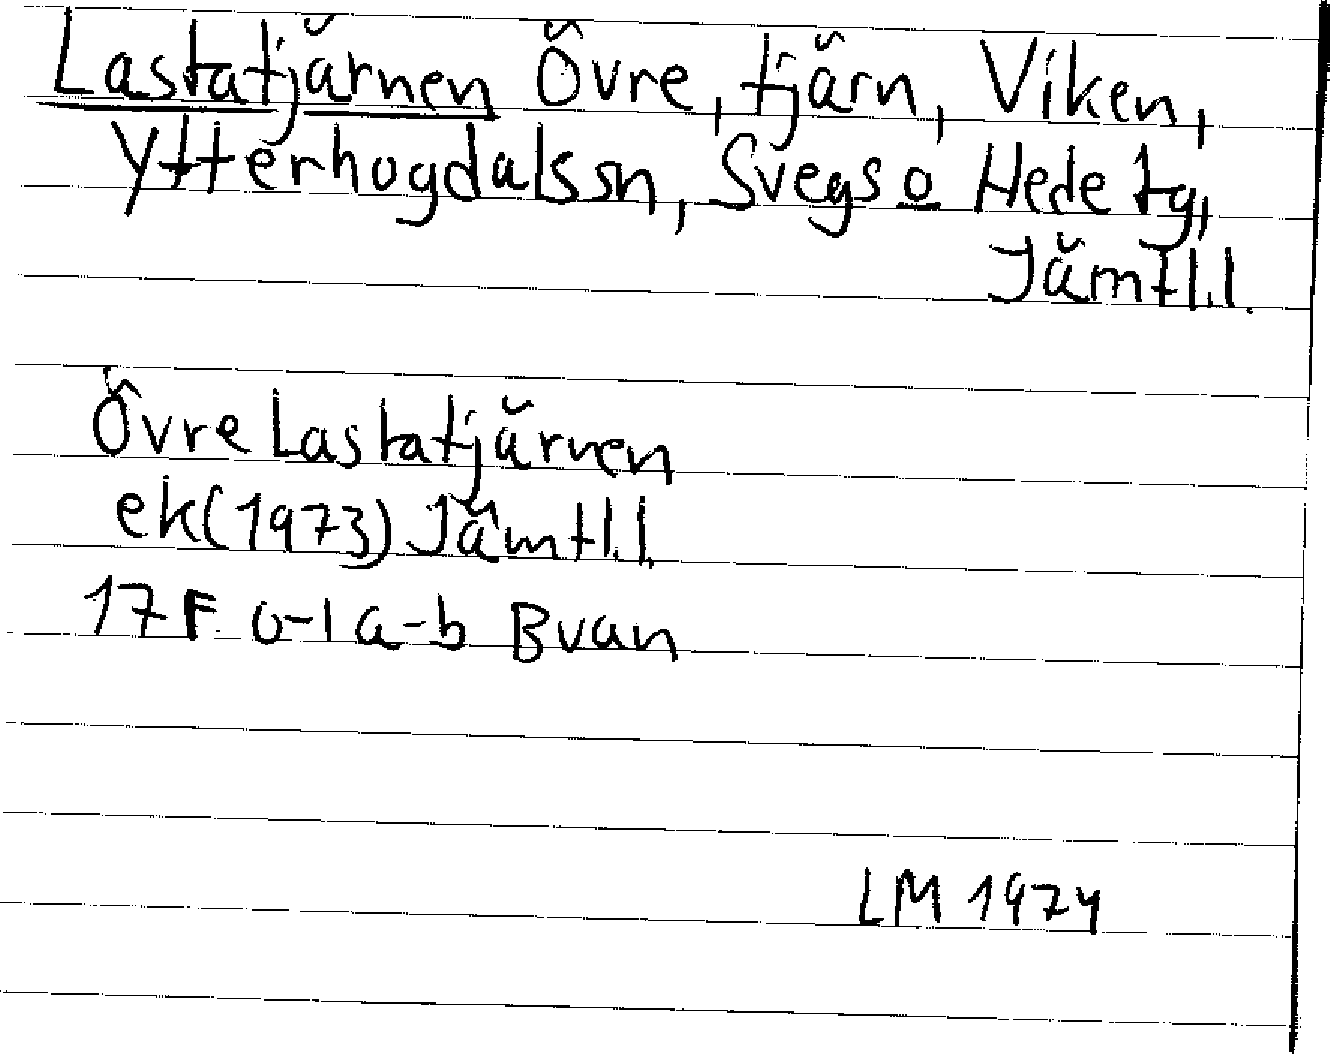 Lastatjärnen Övre, tjärn, Viken,
Ytterhogdals sn, Svegs o Hede tg,
Jämtl.l.
Övre Lastatjärnen
ek(1973) Jämtl.l.
17F 0-1 a-b Bvan
LM 1974